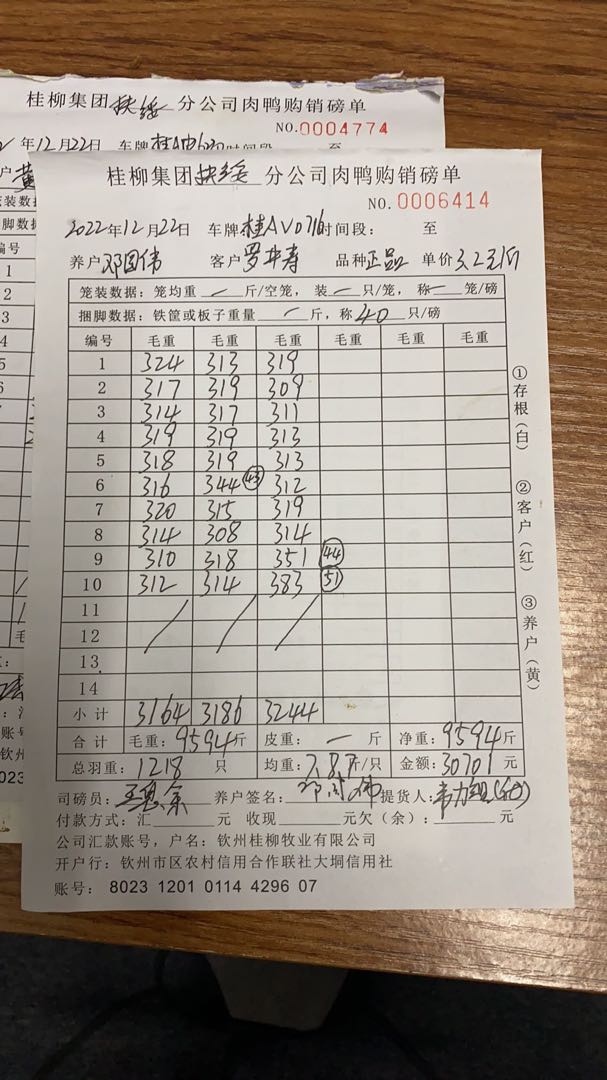 桂柳集团扶绥分公司肉鸭购销磅单
NO.0004774
年12月22日 车牌
桂柳集团扶绥分公司肉鸭购销磅单
NO.0006414
2022年12月22日 车牌桂AV0716时间段: 至
养户邓国伟 客户罗井寿 品种正品 单价3.2元/斤
笼装数据:笼均重 — 斤/空笼,装 — 只/笼,称 — 笼/磅
捆脚数据:铁筐或板子重量 — 斤,称 40 只/磅
编号 毛重 毛重 毛重 毛重 毛重 毛重
1 324 313 319
2 317 319 309
3 314 317 311
4 319 319 313
5 318 319 313
6 316 344 43 312
7 320 315 319
8 314 308 314
9 310 318 351 44
10 312 314 383 51
11
12
13
14
小计 3164 3186 3244
合计 毛重:9594斤 皮重: — 斤 净重:9594斤
总羽重:1218 只 均重:7.87斤/只 金额:30701元
司磅员: 养户签名:邓国伟 提货人:
付款方式:汇 元 收现 元欠(余): 元
公司汇款账号,户名:钦州桂柳牧业有限公司
开户行:钦州市区农村信用合作联社大垌信用社
账号: 8023 1201 0114 4296 07
①存根(白)
②客户(红)
③养户(黄)